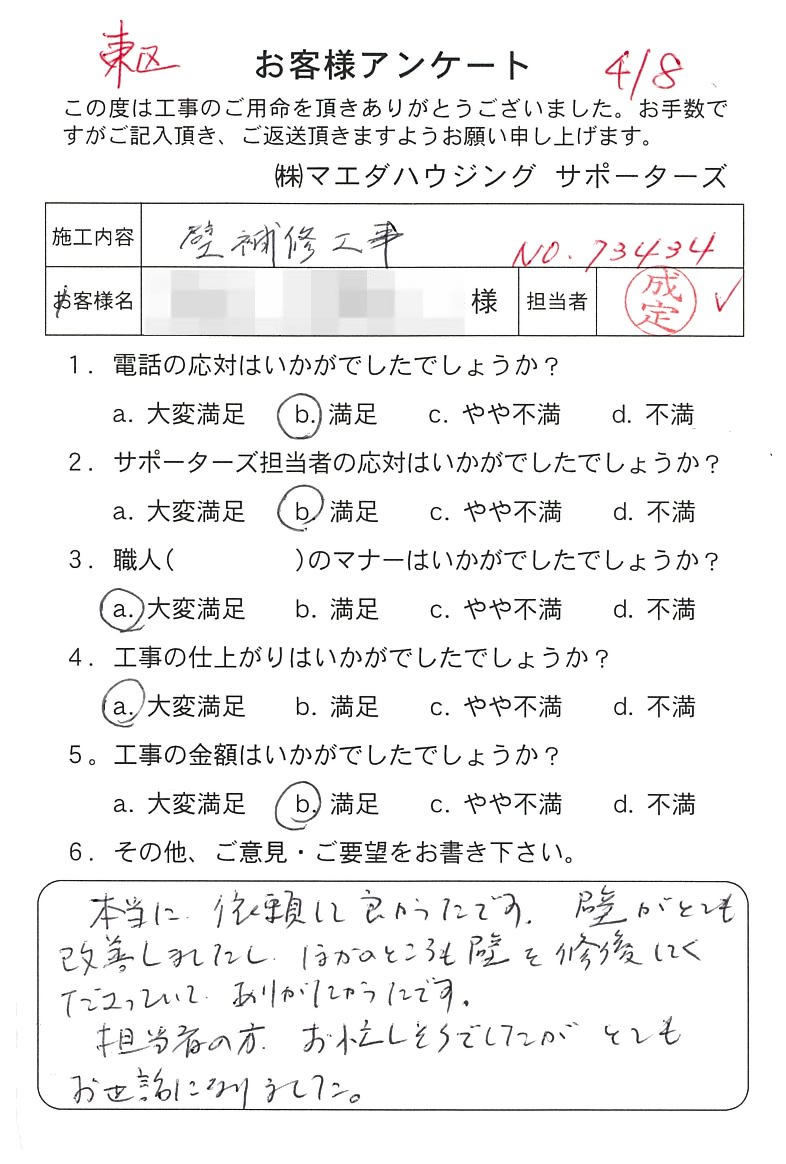 東区 お客様アンケート 4/8
この度は工事のご用命を頂きありがとうございました。お手数で
すがご記入頂き、ご返送頂きますようお願い申し上げます。
㈱マエダハウジング サポーターズ
施工内容 壁補修工事 NO.73434
お客様名 様 担当者 成定
1. 電話の応対はいかがでしたでしょうか？
a. 大変満足 b. 満足 c. やや不満 d. 不満
2. サポーターズ担当者の応対はいかがでしたでしょうか？
a. 大変満足 b. 満足 c. やや不満 d. 不満
3. 職人( )のマナーはいかがでしたでしょうか？
a. 大変満足 b. 満足 c. やや不満 d. 不満
4. 工事の仕上がりはいかがでしたでしょうか？
a. 大変満足 b. 満足 c. やや不満 d. 不満
5。工事の金額はいかがでしたでしょうか？
a. 大変満足 b. 満足 c. やや不満 d. 不満
6. その他、ご意見・ご要望をお書き下さい。
本当に、依頼して良かったです。壁がとても
改善しましたし、ほかのところも壁を修復してく
ださっていて、ありがたかったです。
担当者の方、お忙しそうでしたが とても
お世話になりました。